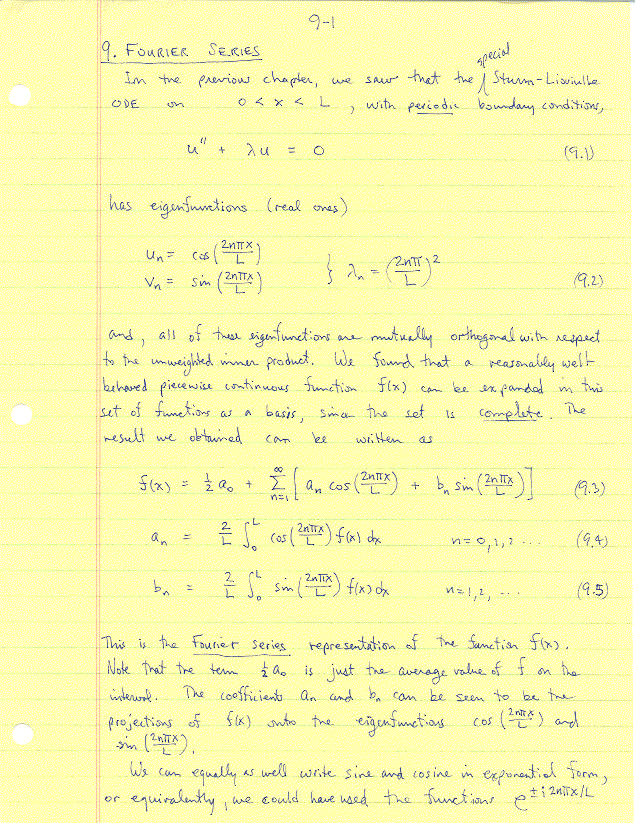 9-1
9. FOURIER SERIES
In the previous chapter, we saw that the special Sturm-Liouville
ODE on 0 < x < L, with periodic boundary conditions,
u'' + λu = 0 (9.1)
has eigenfunctions (real ones)
uₙ = cos(2nπx/L)
vₙ = sin(2nπx/L) } λₙ = (2nπ/L)² (9.2)
and, all of these eigenfunctions are mutually orthogonal with respect
to the unweighted inner product. We found that a reasonably well-
behaved piecewise continuous function f(x) can be expanded in this
set of functions as a basis, since the set is complete. The
result we obtained can be written as
f(x) = ½ a₀ + ∑_{n=1}^{∞} [aₙ cos(2nπx/L) + bₙ sin(2nπx/L)] (9.3)
aₙ = 2/L ∫₀ᴸ cos(2nπx/L) f(x) dx n = 0, 1, 2 ... (9.4)
bₙ = 2/L ∫₀ᴸ sin(2nπx/L) f(x) dx n = 1, 2, ... (9.5)
This is the Fourier series representation of the function f(x).
Note that the term ½ a₀ is just the average value of f on the
interval. The coefficients aₙ and bₙ can be seen to be the
projections of f(x) onto the eigenfunctions cos(2nπx/L) and
sin(2nπx/L).
We can equally as well write sine and cosine in exponential form,
or equivalently, we could have used the functions e^{±i2nπx/L}